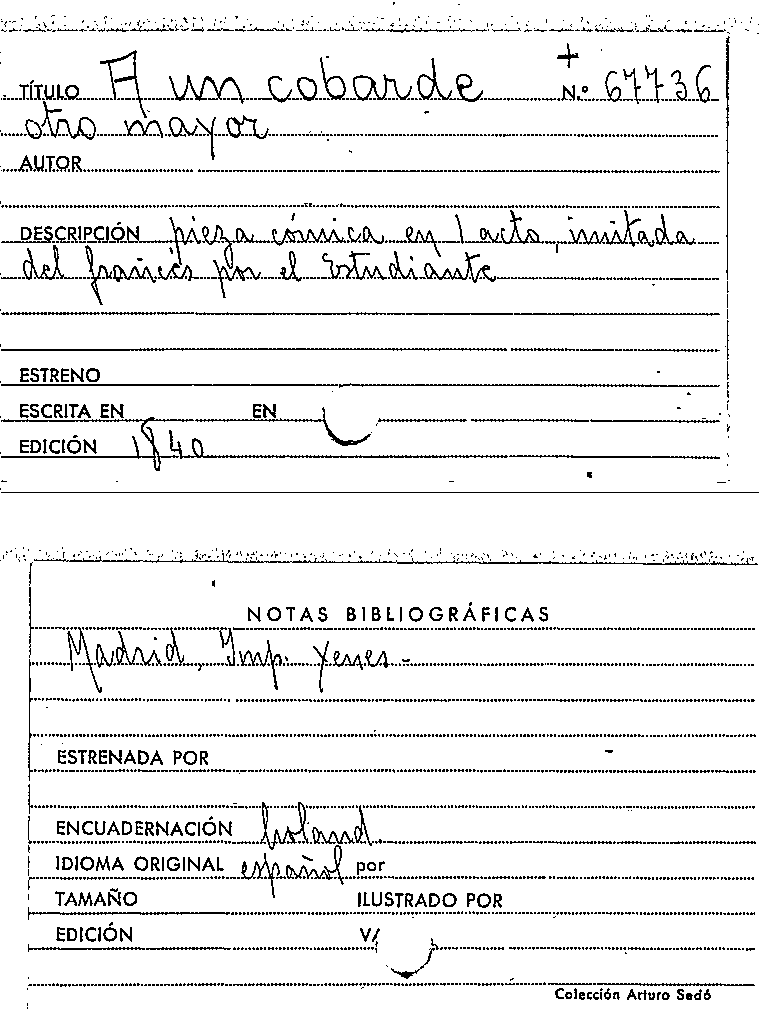 TÍTULO A un cobarde
+
N.º 67736
otro mayor
AUTOR
DESCRIPCIÓN pieza cómica en 1 acto, imitada
del francés por el Estudiante
ESTRENO
ESCRITA EN EN
EDICIÓN 1840
NOTAS BIBLIOGRÁFICAS
Madrid, Imp. Yenes -
ESTRENADA POR
ENCUADERNACIÓN
IDIOMA ORIGINAL español por
TAMAÑO ILUSTRADO POR
EDICIÓN V/
Colección Arturo Sedó